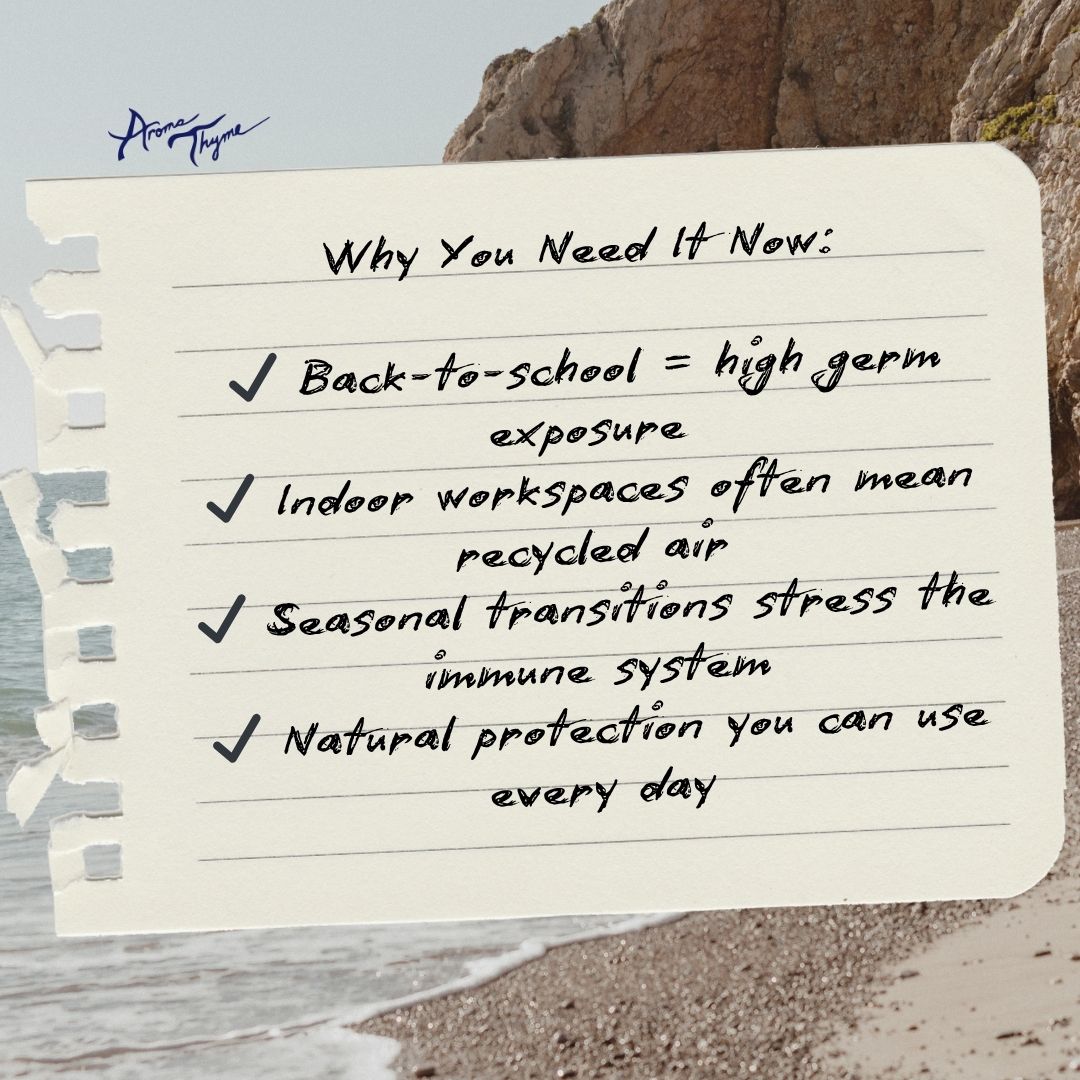 Aroma
Thyme
Why You Need It Now:
✓ Back-to-school = high germ
exposure
✓ Indoor workspaces often mean
recycled air
✓ Seasonal transitions stress the
immune system
✓ Natural protection you can use
every day